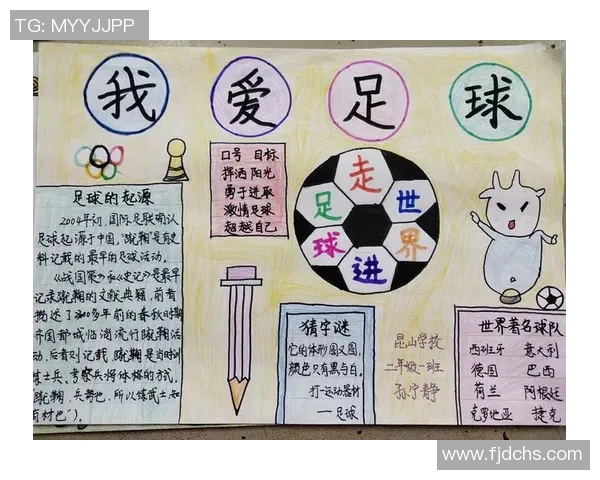 TG: MYYJJPP
我 爱 足 球
足球的起源
2004年初,国际足联确认
足球起源于中国,"蹴鞠"是有史
料记载的最早的足球活动。
《战国策》和《史记》是最早
记录蹴鞠的文献典籍,前者
描述了2300多年前的春秋时期
齐国都城临淄流行蹴鞠活
动,后者则记载,蹴鞠是当时训
练士兵、考察兵将体格的方式。
蹴鞠,兵势也,所以练武士知
有材也")。
口号 目标
挥洒 阳光
勇于进取
激情足球
超越自己
足球走进世界
猜字谜
它的体形圆又圆,
颜色只有黑与白。
打一运动器材
——足球
昆山学校
二年级一班
孙宁静
世界著名球队
西班牙 意大利
德国 巴西
荷兰 阿根廷
克罗地亚 捷克
www.fjdchs.com